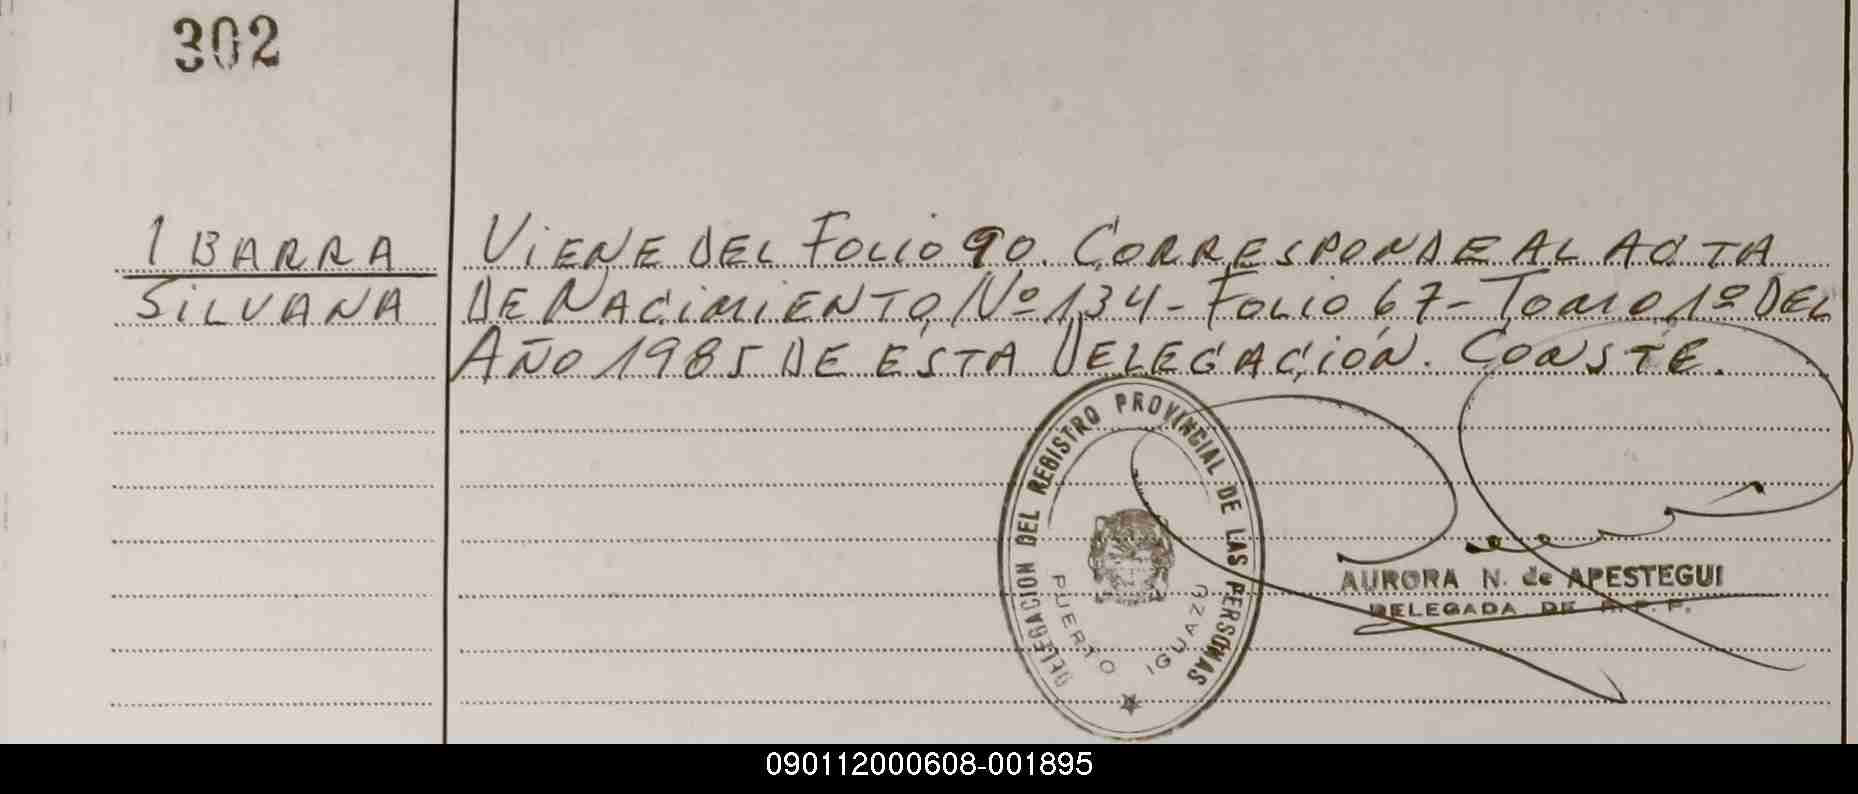 302
IBARRA
SILVANA
VIENE DEL FOLIO 90. CORRESPONDE AL ACTA
DE NACIMIENTO Nº 134 - FOLIO 67 - TOMO 1º DEL
AÑO 1985 DE ESTA DELEGACIÓN. CONSTE.
DELEGACION DEL REGISTRO PROVINCIAL DE LAS PERSONAS
PUERTO IGUAZU
AURORA N. de APESTEGUI
DELEGADA DE
090112000608-001895